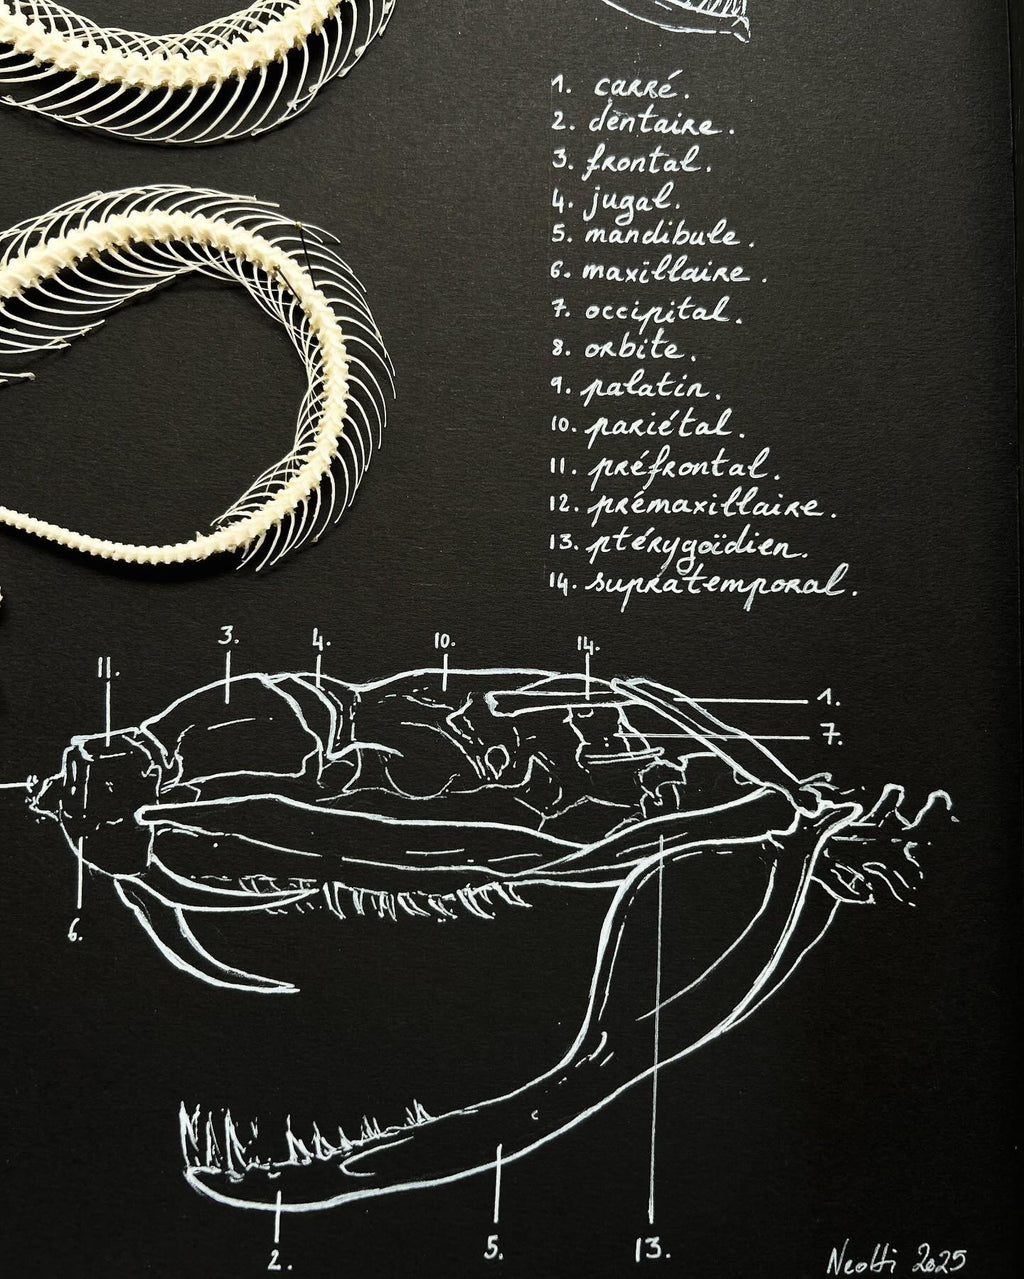 1. carré.
2. dentaire.
3. frontal.
4. jugal.
5. mandibule.
6. maxillaire.
7. occipital.
8. orbite.
9. palatin.
10. pariétal.
11. préfrontal.
12. prémaxillaire.
13. ptérygoïdien.
14. supratemporal.
3. 4. 10. 14.
11.
1.
7.
6.
2. 5. 13.
Neotti 2025